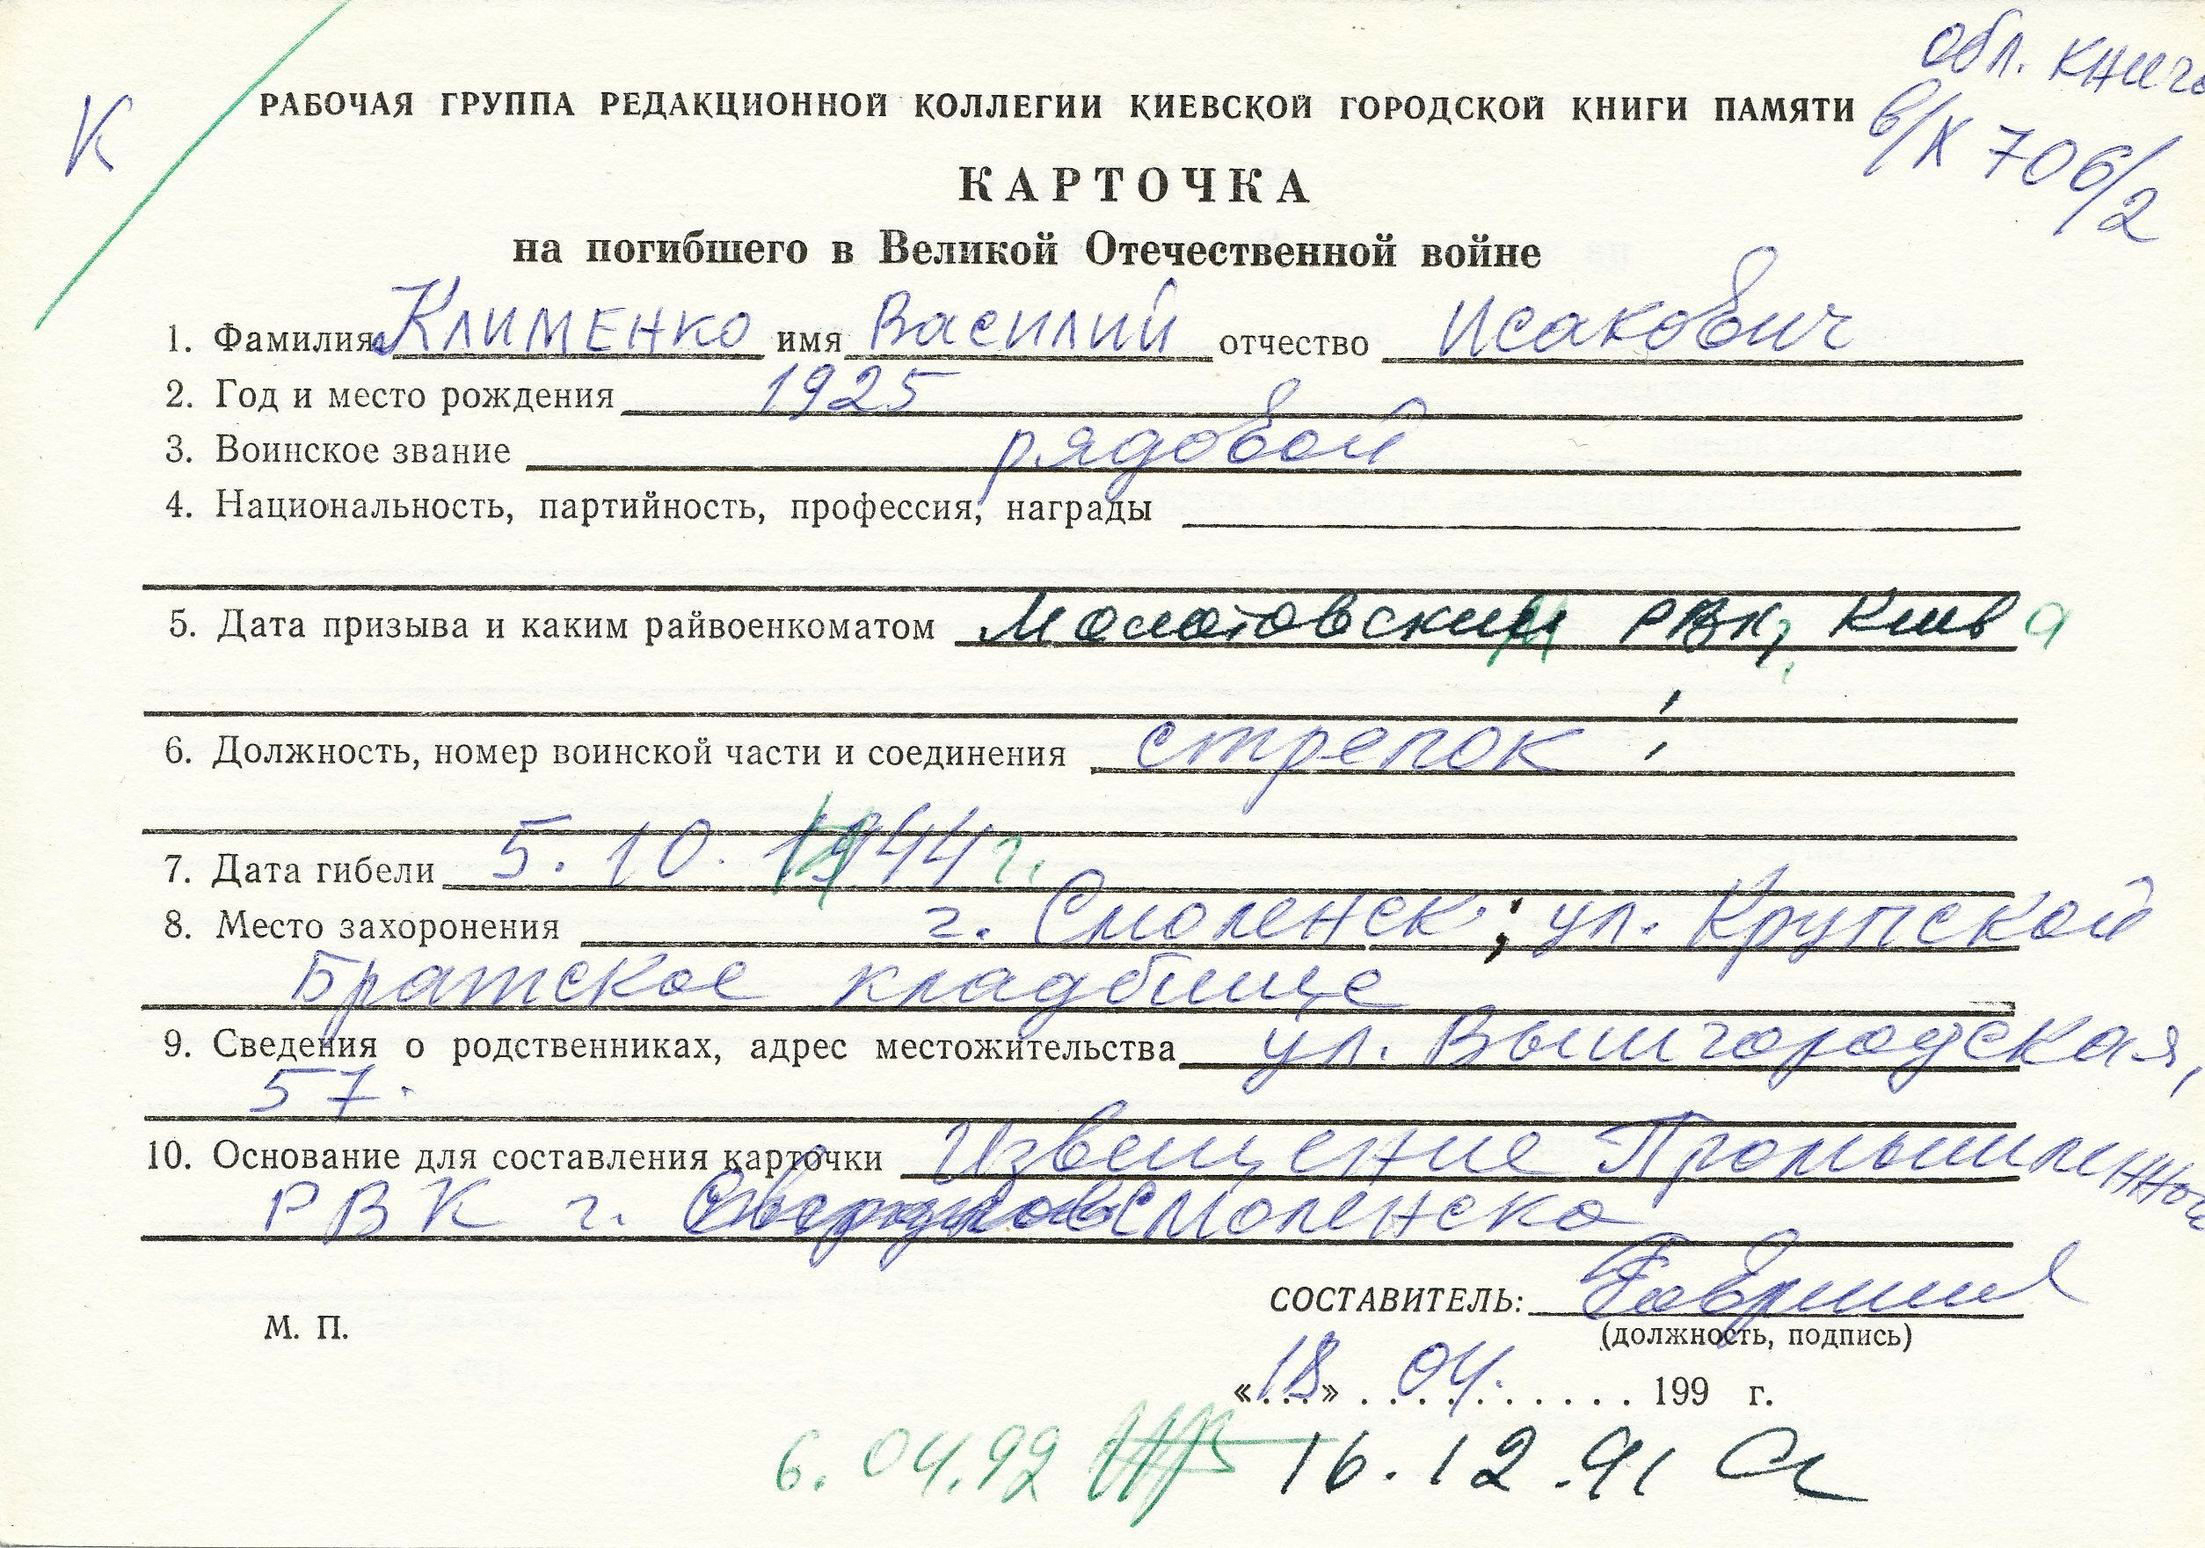 обл. книга
К
в/х 706/2
РАБОЧАЯ ГРУППА РЕДАКЦИОННОЙ КОЛЛЕГИИ КИЕВСКОЙ ГОРОДСКОЙ КНИГИ ПАМЯТИ
КАРТОЧКА
на погибшего в Великой Отечественной войне
1. Фамилия Клименко имя Василий отчество Исакович
2. Год и место рождения 1925
3. Воинское звание рядовой
4. Национальность, партийность, профессия, награды
5. Дата призыва и каким райвоенкоматом Молотовским РВК, Киева
6. Должность, номер воинской части и соединения стрелок
7. Дата гибели 5.10.1944 г.
8. Место захоронения г. Смоленск; ул. Крупской
Братское кладбище
9. Сведения о родственниках, адрес местожительства ул. Вышгородская,
57.
10. Основание для составления карточки Извещение Промышленного
РВК г. Смоленска
СОСТАВИТЕЛЬ:
М. П.
(должность, подпись)
«18» 04. 199 г.
6.04.92 16.12.91